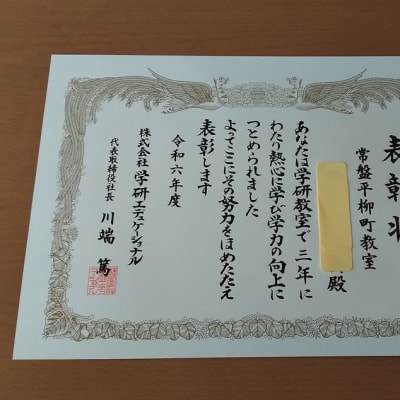 表彰状
常盤平柳町教室
殿
あなたは学研教室で三年に
わたり熱心に学び学力の向上に
つとめられました
よってここにその努力をほめたたえ
表彰します
令和六年度
株式会社学研エデュケーショナル
代表取締役社長 川端 篤